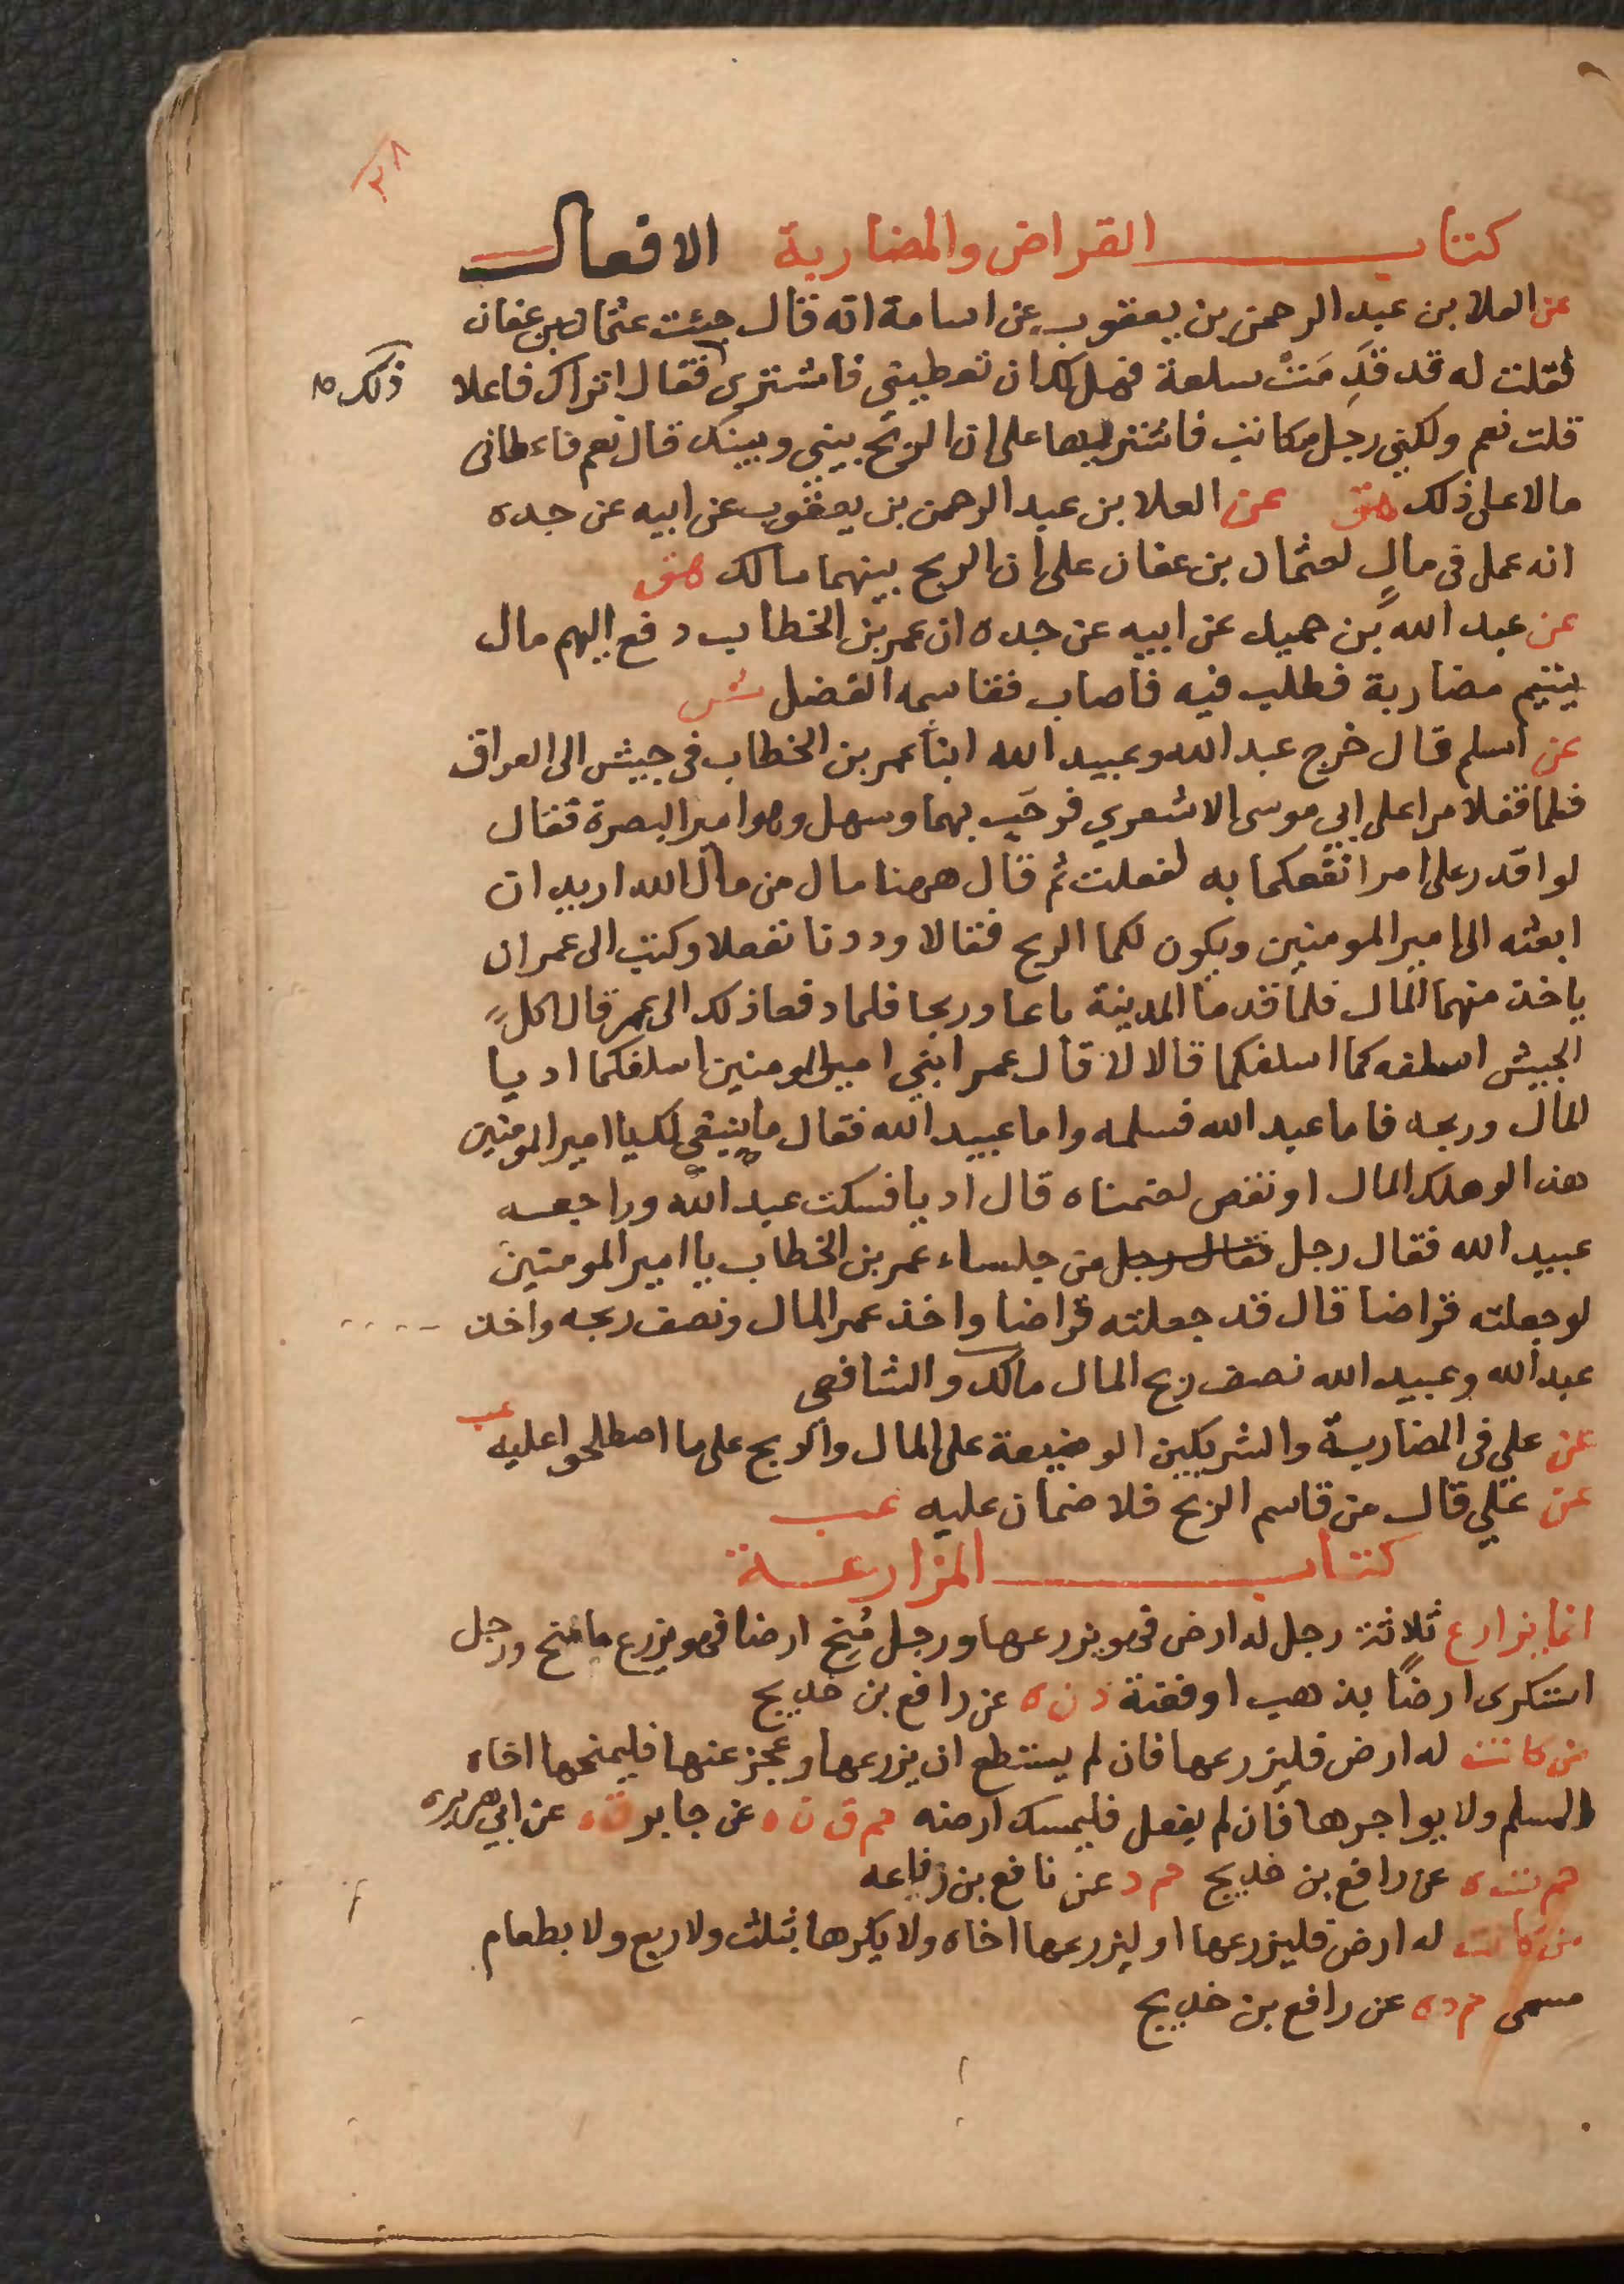 ٣٨
كتاب القراض والمضاربة الافعال
عن العلا بن عبد الرحمن بن يعقوب عن اسامة انه قال جئت عثمان بن عفان
فقلت له قد قَدِمَتْ سلعة فهل لك ان تعطيني فاشترى فقال اتراك فاعلا
ذلك صح
قلت نعم ولكني رجل مكاتب فاشتريها على ان الربح بيني وبينك قال نعم فاعطانى
مالا على ذلك هق عن العلا بن عبد الرحمن بن يعقوب عن ابيه عن جده
انه عمل فى مالٍ لعثمان بن عفان على ان الربح بينهما مالك هق
عن عبد الله بن حميد عن ابيه عن جده ان عمر بن الخطاب دفع اليهم مال
يتيم مضاربة فطلب فيه فاصاب فقاسمه الفضل ش
عن اسلم قال خرج عبد الله وعبيد الله ابنا عمر بن الخطاب فى جيش الى العراق
فلما قفلا مرا على ابي موسى الاشعري فرحَب بهما وسهل وهو امير البصرة فقال
لو اقدر على امر انفعكما به لفعلت ثم قال ههنا مال من مال الله اريد ان
ابعثه الى امير المومنين ويكون لكما الربح فقالا وددنا ففعلا وكتب الى عمر ان
ياخذ منهما المال فلما قدما المدينة باعا وربحا فلما دفعا ذلك الى عمر قال اكل
الجيش اسلفه كما اسلفكما قالا لا قال عمر ابني امير المومنين اسلفكما اديا
المال وربحه فاما عبد الله فسلمه واما عبيد الله فقال ما ينبغي لك يا امير المومنين
هذا لو هلك المال او نقص لضمناه قال اديا فسكت عبد الله وراجعه
عبيد الله فقال رجل فقال رجل من جلساء عمر بن الخطاب يا امير المومنين
لو جعلته قراضا قال قد جعلته قراضا واخذ عمر المال ونصف ربحه واخذ
عبد الله وعبيد الله نصف ربح المال مالك والشافعى
عن علي فى المضاربة والشريكين الوضيعة على المال والربح على ما اصطلحوا عليه عب
عن علي قال من قاسم الربح فلا ضمان عليه عب
كتاب المزارعة
انما يزارع ثلاثة رجل له ارض فهو يزرعها ورجل مُنِح ارضا فهو يزرع ما مُنح ورجل
استكرى ارضًا بذهب او فضة د ن ه عن رافع بن خديج
من كانت له ارض فليزرعها فان لم يستطع ان يزرعها وعجز عنها فليمنحها اخاه
المسلم ولا يواجرها فان لم يفعل فليمسك ارضه حم ق ن ه عن جابر ق ه عن ابي هريره
حم ت ن ه عن رافع بن خديج حم د عن نافع بن رفاعه
من كانت له ارض فليزرعها او ليزرعها اخاه ولا يكرها بثلث ولا ربع ولا بطعام
مسمى حم د ه عن رافع بن خديج